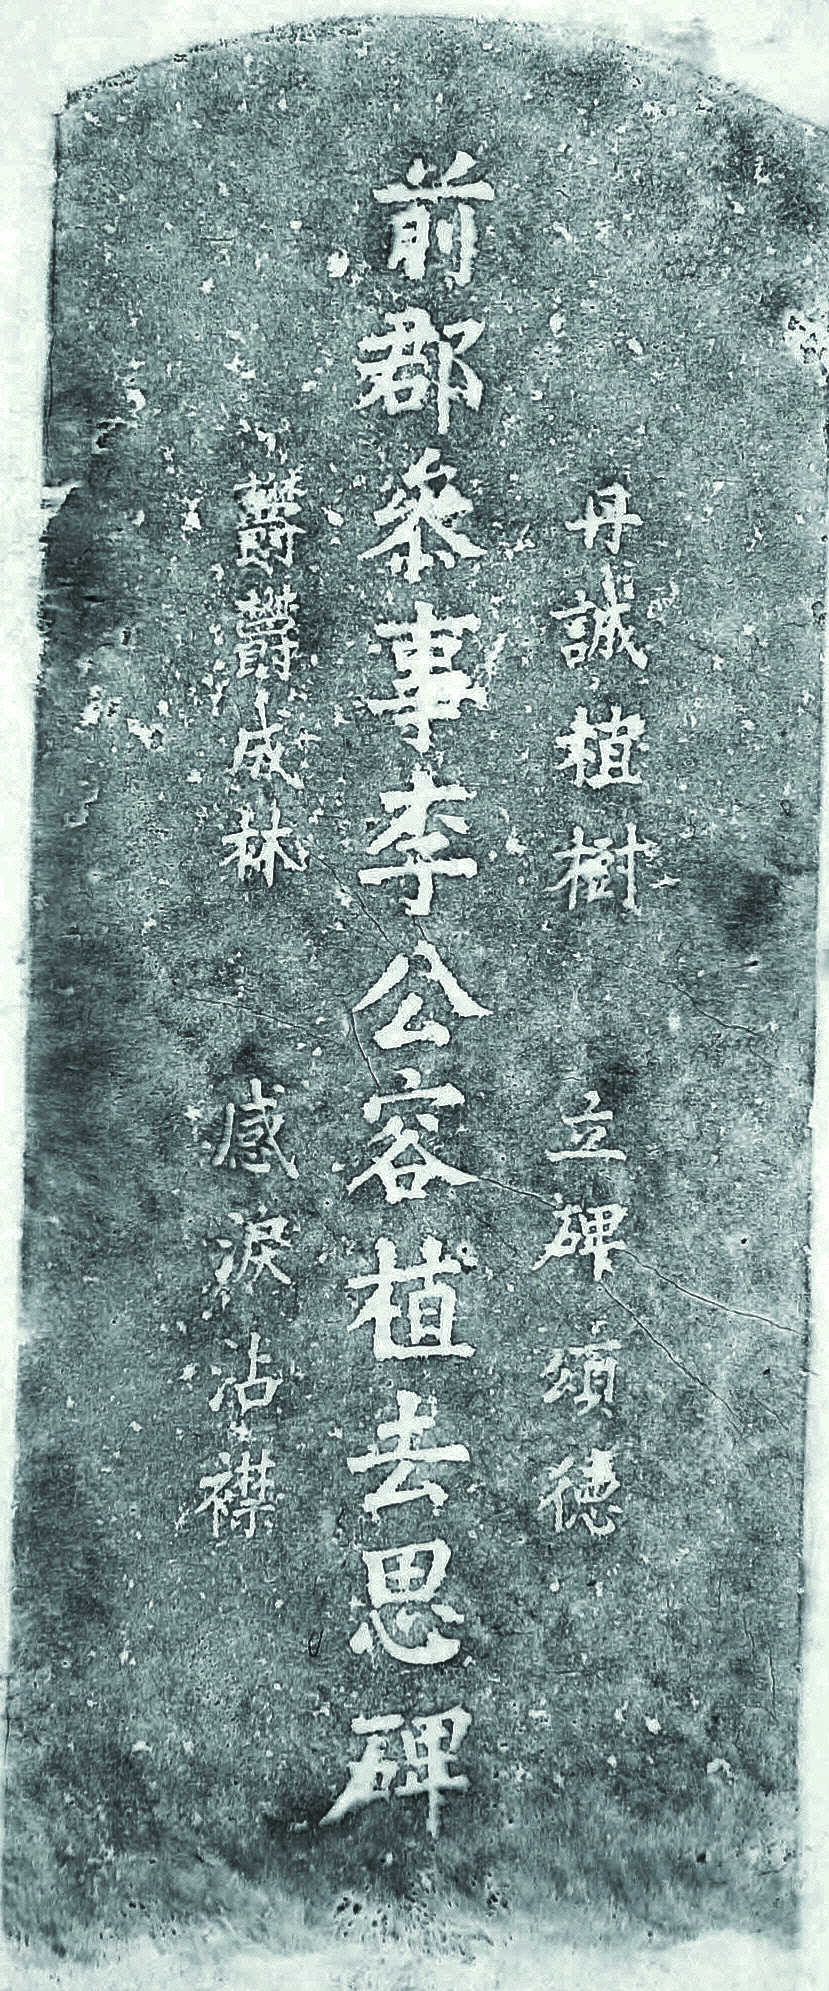 丹誠植樹 立碑頌德
前郡參事李公容植去思碑
欝欝成林 感淚沾襟